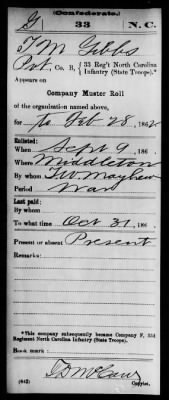 (Confederate.)
G 33 N.C.
T M Gibbs
Pvt. Co. B, 33 Reg't North Carolina Infantry (State Troops).*
Appears on
Company Muster Roll
of the organization named above,
for to Feb 28, 1862
Enlisted:
When Sept 9, 186 .
Where Middleton
By whom T.W. Mayhew
Period War
Last paid:
By whom
To what time Oct 31, 186 .
Present or absent Present
Remarks:
*This company subsequently became Company F, 33d
Regiment North Carolina Infantry (State Troops).
Book mark:
(642) Copyist.